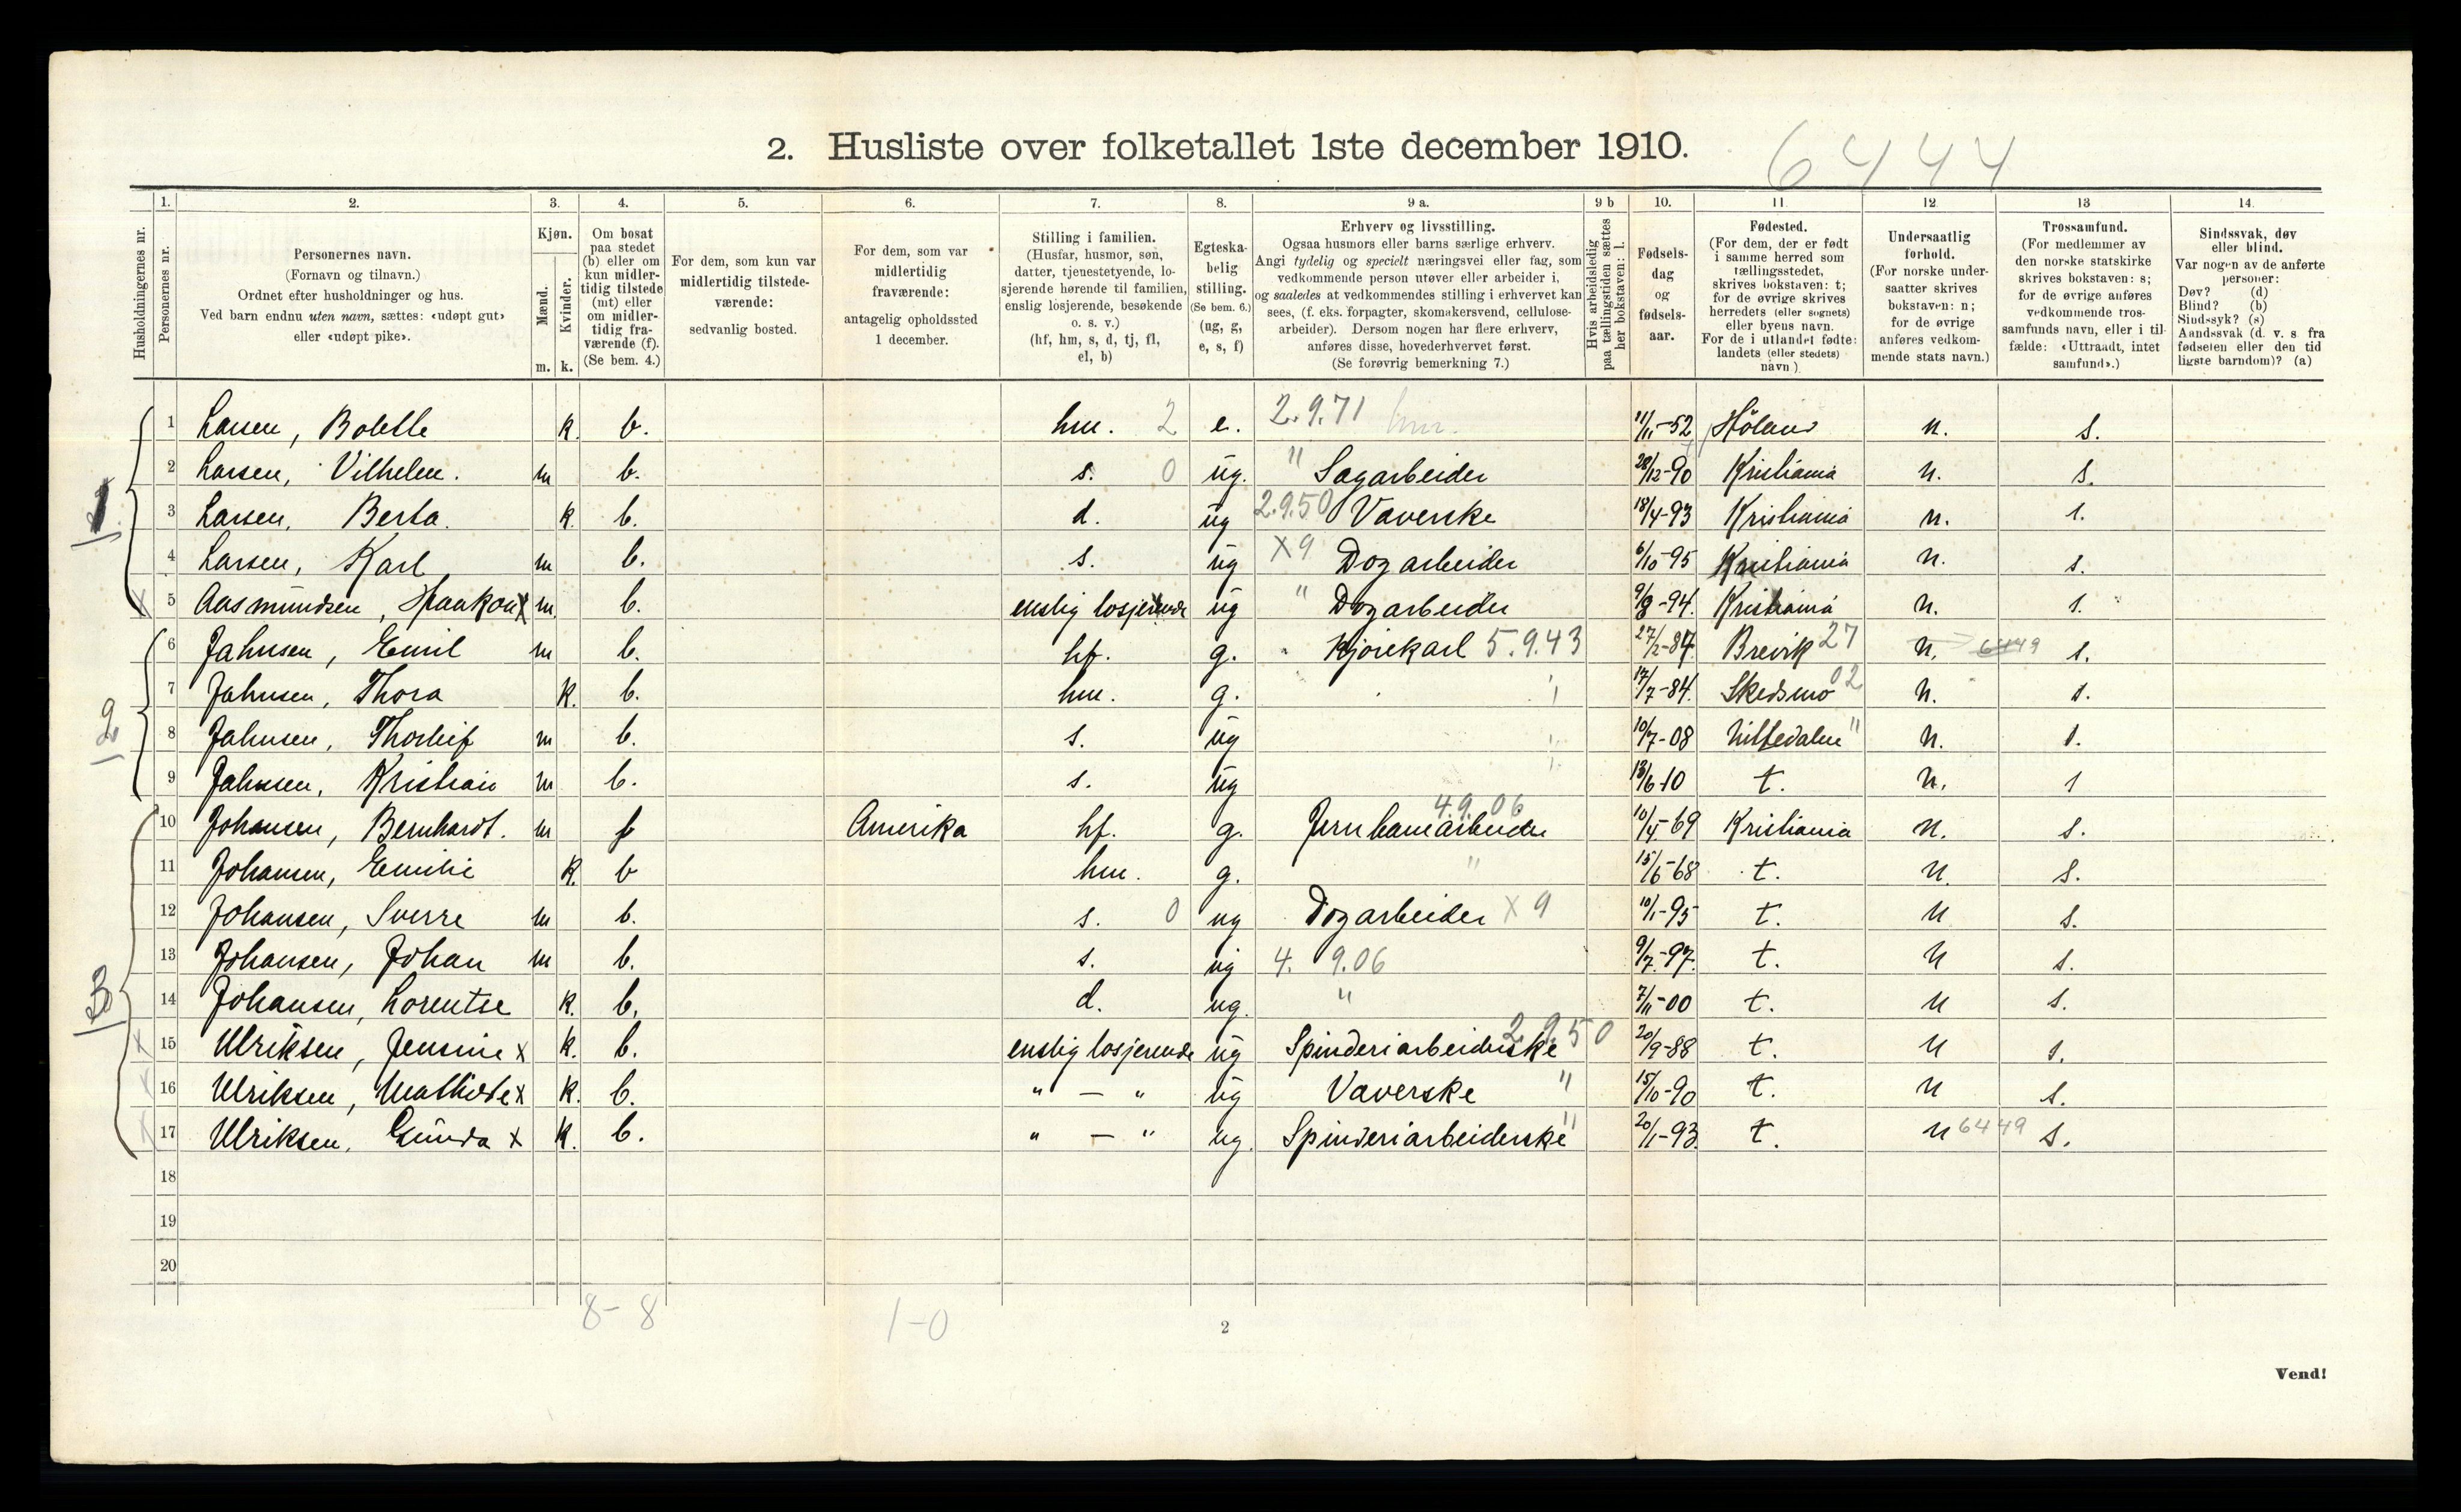 2. Husliste over folketallet 1ste december 1910. 6444
1. 2. 3. 4. 5. 6. 7. 8. 9 a. 9 b 10. 11. 12 13 14.
Husholdningernes nr.
Personernes nr.
Personernes navn.
(Fornavn og tilnavn.)
Ordnet efter husholdninger og hus.
Ved barn endnu uten navn, sættes: «udøpt gut»
eller «udøpt pike».
Kjøn.
Mænd.
Kvinder.
m. k.
Om bosat
paa stedet
(b) eller om
kun midler-
tidig tilstede
(mt) eller
om midler-
tidig fra-
værende (f).
(Se bem. 4.)
For dem, som kun var
midlertidig tilstede-
værende:
sedvanlig bosted.
For dem, som var
midlertidig
fraværende:
antagelig opholdssted
1 december.
Stilling i familien.
(Husfar, husmor, søn,
datter, tjenestetyende, lo-
sjerende hørende til familien,
enslig losjerende, besøkende
o. s. v.)
(hf, hm, s, d, tj, fl,
el, b)
Egteska-
belig
stilling.
(Se bem. 6.)
(ug, g,
e, s, f)
Erhverv og livsstilling.
Ogsaa husmors eller barns særlige erhverv.
Angi tydelig og specielt næringsvei eller fag, som
vedkommende person utøver eller arbeider i,
og saaledes at vedkommendes stilling i erhvervet kan
sees, (f. eks. forpagter, skomakersvend, cellulose-
arbeider). Dersom nogen har flere erhverv,
anføres disse, hovederhvervet først.
(Se forøvrig bemerkning 7.)
Hvis arbeidsledig
paa tællingstiden sættes
her bokstaven: l.
Fødsels-
dag
og
fødsels-
aar.
Fødested.
(For dem, der er født
i samme herred som
tællingsstedet,
skrives bokstaven: t;
for de øvrige skrives
herredets (eller sognets)
eller byens navn.
For de i utlandet fødte:
landets (eller stedets)
navn.)
Undersaatlig
forhold.
(For norske under-
saatter skrives
bokstaven: n;
for de øvrige
anføres vedkom-
mende stats navn.)
Trossamfund.
(For medlemmer av
den norske statskirke
skrives bokstaven: s;
for de øvrige anføres
vedkommende tros-
samfunds navn, eller i til-
fælde: «Uttraadt, intet
samfund».)
Sindssvak, døv
eller blind.
Var nogen av de anførte
personer:
Døv? (d)
Blind? (b)
Sindssyk? (s)
Aandssvak (d. v. s. fra
fødselen eller den tid
ligste barndom)? (a)
1 Larsen, Bolette k. b. hm. 2 e. 2.9.71 hm. 11/11-52 Höland n. s.
2 Larsen, Vilhelm. m b. s. 0 ug. " Sagarbeider 28/12-90 Kristiania n. s.
1 3 Larsen, Berta. k. b. d. ug 2.9.50 Væverske 18/4-93 Kristiania n. s.
4 Larsen, Karl m b. s. ug X9 Dagarbeider 6/10-95 Kristiania n. s.
X 5 Aasmundsen, Haakon X m. b. enslig losjerende ug " Dagarbeider 9/8-94. Kristiania n. s.
6 Jahnsen, Emil m b. hf. g. Kjörekarl 5.9.43 27/2-87 Brevik 27 n. 6449 s.
7 Jahnsen, Thora k. b. hm. g. " 17/7-84. Skedsmo 02 n. s.
2 8 Jahnsen, Thorleif m b. s. ug " 10/7-08 Nittedalen " n. s.
9 Jahnsen, Kristian m b. s. ug " 13/6-10 t. n. s
10 Johansen, Bernhardt. m f Amerika hf. g. Jernbanearbeider 4.9.06 10/4-69 Kristiania n. s.
11 Johansen, Emilie k. b hm. g. " 15/6-68 t. n. s.
12 Johansen, Sverre m b. s. 0 ug Dagarbeider X 9 10/1-95 t. n s.
13 Johansen, Johan m b. s. ug 4. 9.06 9/7-97. t. n s.
3 14 Johansen, Lorentse k. b. d. ug. " 7/11-00 t. n s.
X 15 Ulriksen, Jensine x k. b. enslig losjerende ug Spinderiarbeiderske 2.9.50 20/9-88 t. n s.
X 16 Ulriksen, Mathilde x k. b. " — " ug Væverske " 15/10-90 t. n s.
X 17 Ulriksen, Gunda x k. b. " — " ug. Spinderiarbeiderske " 20/1-93. t. n 6449 s.
18
19
20
8-8 1-0
2
Vend!